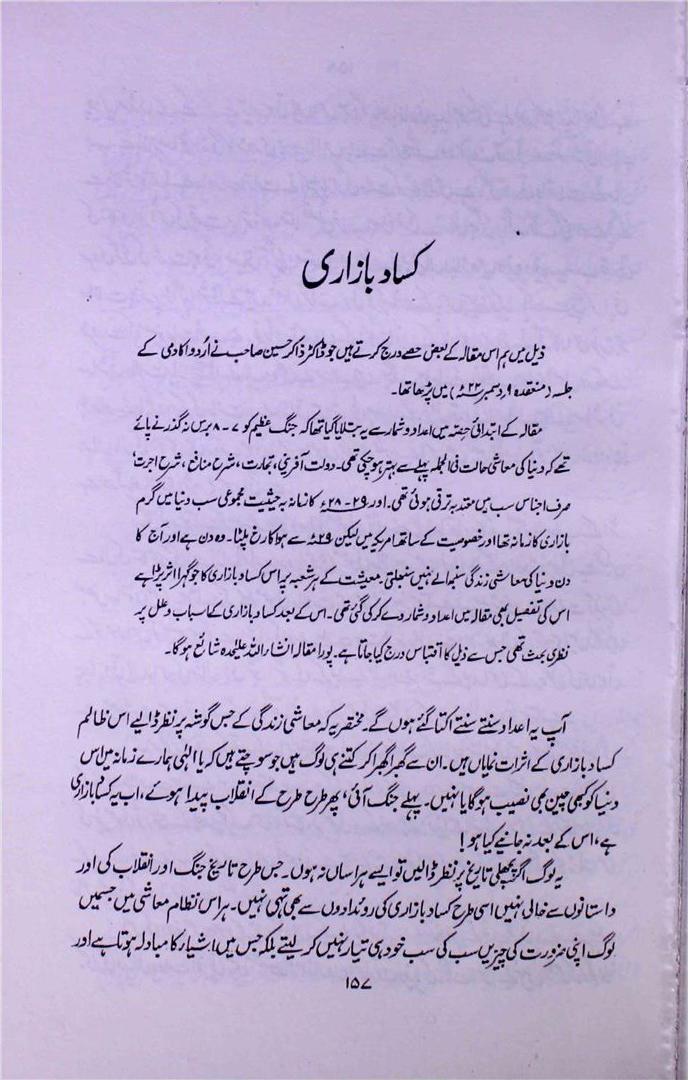 کساد بازاری
ذیل میں ہم اس مقالہ کے بعض حصے درج کرتے ہیں جو ڈاکٹر ذاکر حسین صاحب نے اُردو اکادمی کے
جلسہ (منعقدہ ۹ دسمبر ۳۲ء) میں پڑھا تھا۔
مقالہ کے ابتدائی حصّہ میں اعداد و شمار سے یہ بتلایا گیا تھا کہ جنگ عظیم کو ۷ - ۸ برس نہ گذرنے پائے
تھے کہ دنیا کی معاشی حالت فی الجملہ پہلے سے بہتر ہو چکی تھی۔ دولت آفرینی، تجارت، شرح منافع، شرح اجرت،
صرف اجناس سب میں معتدبہ ترقی ہوئی تھی۔ اور ۲۹ - ۲۸ء کا زمانہ بہ حیثیت مجموعی سب دنیا میں گرم
بازاری کا زمانہ تھا اور خصوصیت کے ساتھ امریکہ میں لیکن ۲۹ء سے ہوا کا رخ پلٹا۔ وہ دن ہے اور آج کا
دن دنیا کی معاشی زندگی سنبھالے نہیں سنبھلتی۔ معیشت کے ہر شعبہ پر اس کساد بازاری کا جو گہرا اثر پڑا ہے
اس کی تفصیل بھی مقالہ میں اعداد و شمار دے کر کی گئی تھی۔ اس کے بعد کساد بازاری کے اسباب و علل پر
نظری بحث تھی جس سے ذیل کا اقتباس درج کیا جاتا ہے۔ پورا مقالہ انشاء اللہ علیٰحدہ شائع ہوگا۔
آپ یہ اعداد سنتے سنتے اکتا گئے ہوں گے۔ مختصر یہ کہ معاشی زندگی کے جس گوشہ پر نظر ڈالیے اس ظالم
کساد بازاری کے اثرات نمایاں ہیں۔ ان سے گھبرا گھبرا کر کتنے ہی لوگ ہیں جو سوچتے ہیں کہ یا الٰہی ہمارے زمانہ میں اس
دنیا کو کبھی چین بھی نصیب ہوگا یا نہیں۔ پہلے جنگ آئی، پھر طرح طرح کے انقلاب پیدا ہوئے، اب یہ کساد بازاری
ہے، اس کے بعد نہ جانیے کیا ہو!
یہ لوگ اگر پچھلی تاریخ پر نظر ڈالیں تو ایسے ہراساں نہ ہوں۔ جس طرح تاریخ جنگ اور انقلاب کی اور
داستانوں سے خالی نہیں اسی طرح کساد بازاری کی روئدادوں سے بھی تہی نہیں۔ ہر اس نظام معاشی میں جسمیں
لوگ اپنی ضرورت کی چیزیں سب کی سب خود ہی تیار نہیں کر لیتے بلکہ جس میں اشیار کا مبادلہ ہوتا ہے اور
۱۵۷